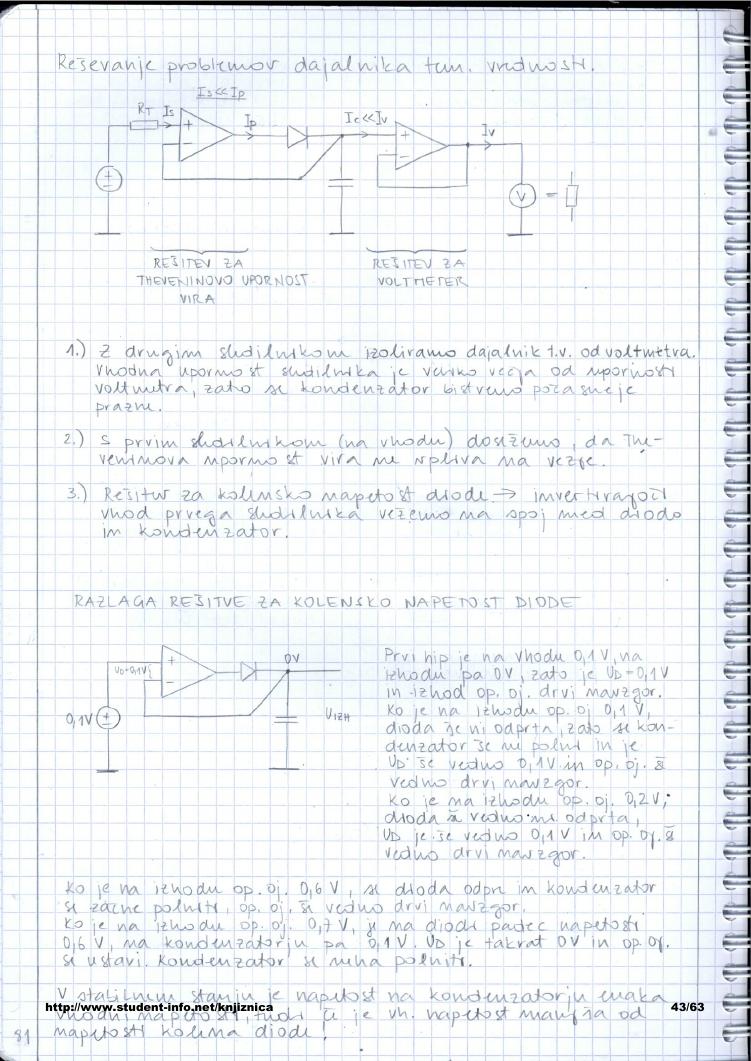 Reševanje problemov dajalnika tem. vrednosti.
Is<<Ip
RT
Is
Ip
Ic<<Iv
Iv
+
−
+
−
V
REŠITEV ZA
THEVENINOVO UPORNOST
VIRA
REŠITEV ZA
VOLTMETER
1.) Z drugim sledilnikom izoliramo dajalnik t.v. od voltmetra.
Vhodna upornost sledilnika je veliko večja od upornosti
voltmetra, zato se kondenzator bistveno počasneje
prazne.
2.) S prvim sledilnikom (na vhodu) dosežemo, da The-
veninova upornost vira ne vpliva na vezje.
3.) Rešitev za kolensko napetost diode → invertirajoči
vhod prvega sledilnika vežemo na spoj med diodo
in kondenzator.
RAZLAGA REŠITVE ZA KOLENSKO NAPETOST DIODE
UD=0,1V
+
−
0V
0,1V
UIZH
Prvi hip je na vhodu 0,1 V, na
izhodu pa 0V, zato je UD=0,1V
in izhod op. oj. drvi navzgor.
Ko je na izhodu op. oj 0,1 V,
dioda še ni odprta, zato se kon-
denzator še ne polni in je
UD še vedno 0,1V in op. oj. še
vedno drvi navzgor.
Ko je na izhodu op. oj. 0,2V,
dioda še vedno ni odprta,
UD je še vedno 0,1V in op. oj. še
vedno drvi navzgor.
Ko je na izhodu op. oj. 0,6 V, se dioda odpre in kondenzator
se začne polniti, op. oj. še vedno drvi navzgor.
Ko je na izhodu op. oj. 0,7 V, je na diodi padec napetosti
0,6 V, na kondenzatorju pa 0,1V. UD je takrat 0V in op. oj.
se ustavi. Kondenzator se neha polniti.
V stabilnem stanju je napetost na kondenzatorju enaka
http://www.student-info.net/knjiznica 43/63
vhodni napetosti, tudi če je vh. napetost manjša od
81 napetosti kolena diode!